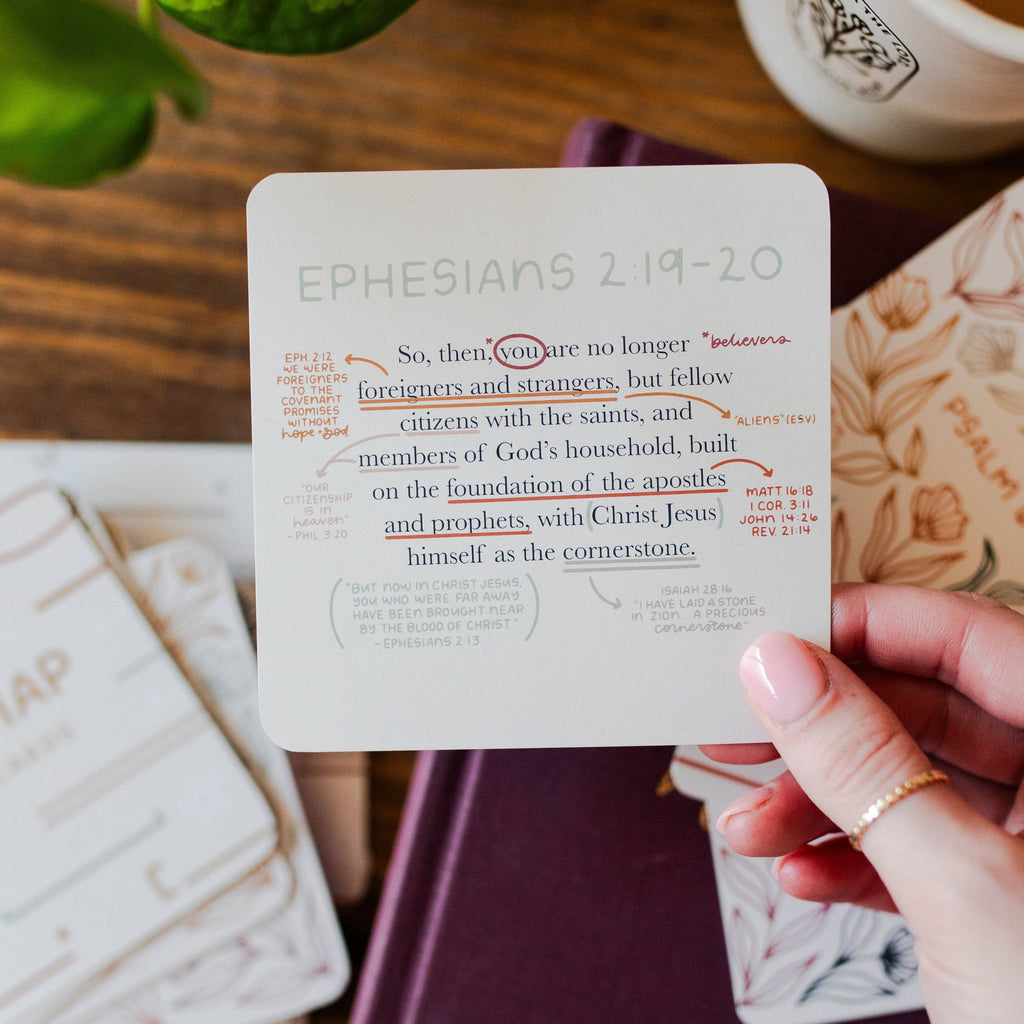 EPHESIANS 2:19-20
So, then,* you are no longer
*believers
foreigners and strangers, but fellow
citizens with the saints, and
members of God's household, built
on the foundation of the apostles
and prophets, with (Christ Jesus)
himself as the cornerstone.
EPH. 2:12
WE WERE
FOREIGNERS
TO THE
COVENANT
PROMISES
WITHOUT
hope + God.
"ALIENS" (ESV)
"OUR
CITIZENSHIP
IS IN
heaven"
- PHIL 3:20
MATT. 16:18
1 COR. 3:11
JOHN 14:26
REV. 21:14
"BUT NOW IN CHRIST JESUS,
YOU WHO WERE FAR AWAY
HAVE BEEN BROUGHT NEAR
BY THE BLOOD OF CHRIST."
- EPHESIANS 2:13
ISAIAH 28:16
"I HAVE LAID A STONE
IN ZION... A PRECIOUS
cornerstone"
PSALM
MAP
CARDS